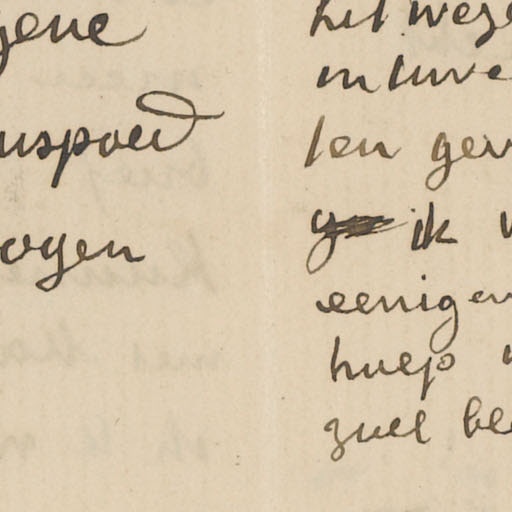 gene
uspoed
ogen
het weze
intuve
ten gev
ik v
eenigen
huep
zuel ble